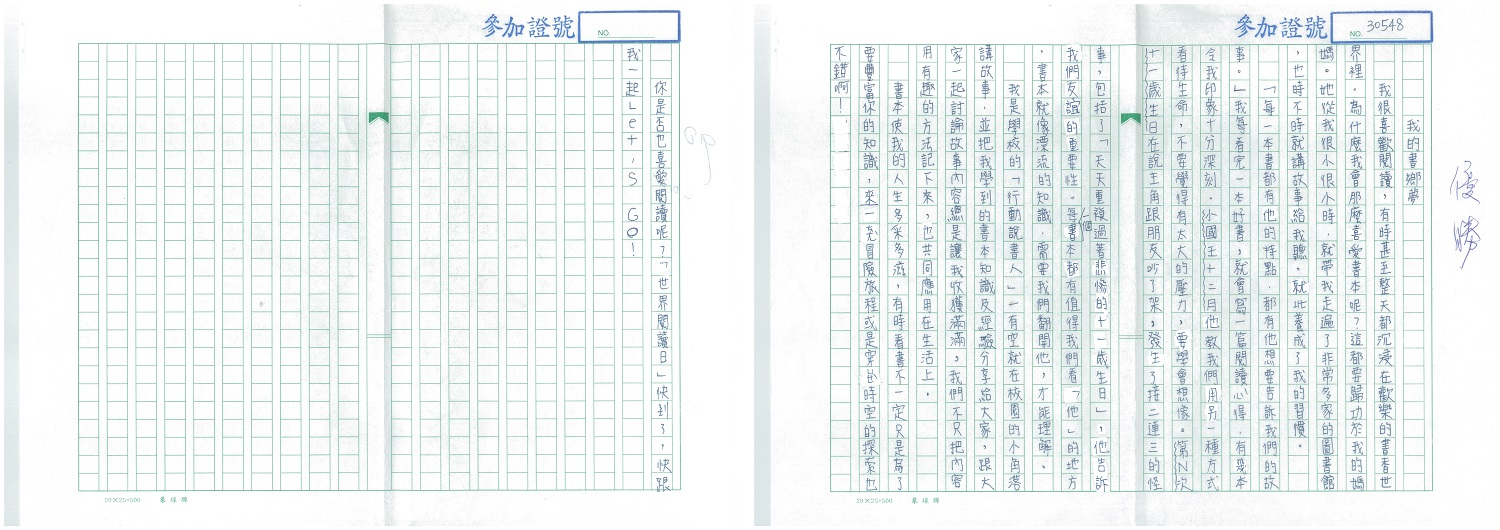 參加證號
NO. 30548
優勝
我的書鄉夢
我很喜歡閱讀,有時甚至整天都沉浸在歡樂的書香世
界裡。為什麼我會那麼喜愛書本呢?這都要歸功於我的媽
媽。她從我很小很小時,就帶我走遍了非常多家的圖書館
,也時不時就講故事給我聽,就此養成了我的習慣。
「每一本書都有他的特點,都有他想要告訴我們的故
事。」我每看完一本好書,就會寫一篇閱讀心得,有幾本
令我印象十分深刻,小國王十二月他教我們用另一種方式
看待生命,不要覺得有太大的壓力,要學會想像。第N次
十一歲生日在說主角跟朋友吵了架,發生了接二連三的怪
事,包括了「天天重複過著悲慘的十一歲生日」,他告訴
我們友誼的重要性。每一個書本都有值得我們看「他」的地方
,書本就像漂流的知識,需要我們翻開他,才能理解。
我是學校的「行動說書人」一有空就在校園的小角落
講故事,並把我學到的書本知識及經驗分享給大家,跟大
家一起討論故事內容總是讓我收獲滿滿,我們不只把內容
用有趣的方法記下來,也共同應用在生活上。
書本使我的人生多采多滋,有時看書不一定只是為了
要豐富你的知識,來一充冒險旅程或是穿出時空的探索也
不錯啊!
20×25=500 象球牌
參加證號
NO.
你是否也喜愛閱讀呢?「世界閱讀日」快到了,快跟
我一起Let,S GO!
20×25=500 象球牌